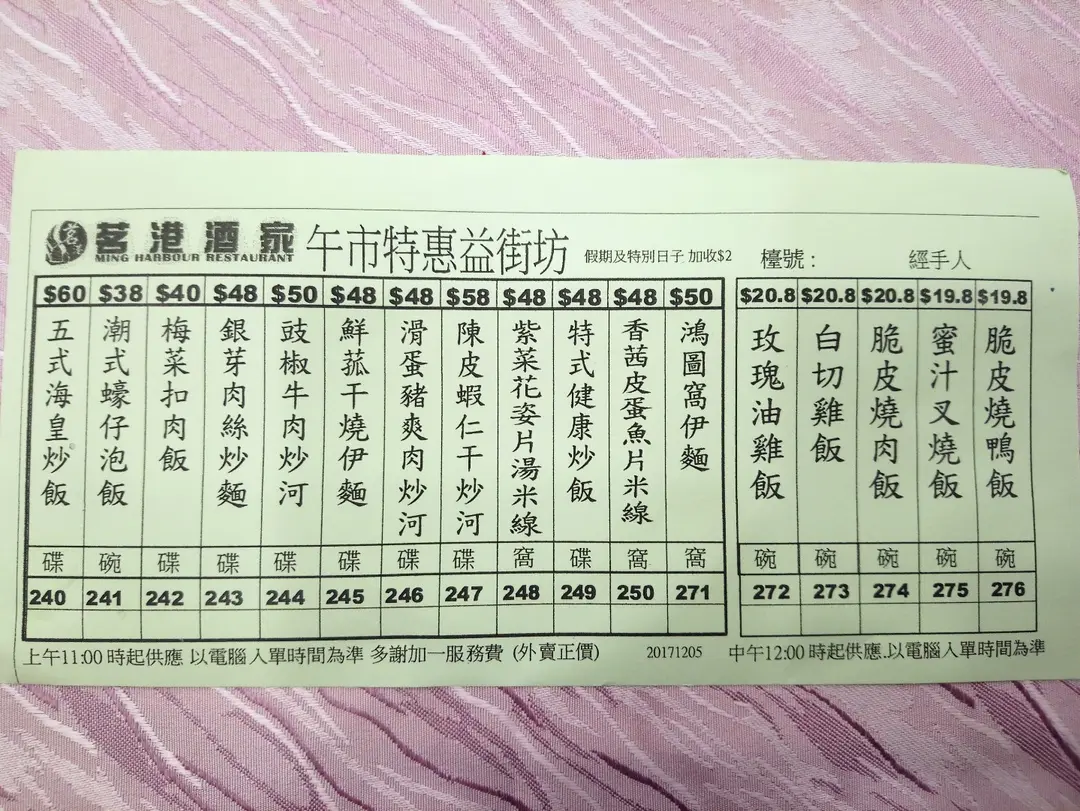 茗港酒家 午市特惠益街坊 假期及特別日子 加收$2 檯號： 經手人
MING HARBOUR RESTAURANT
$60 $38 $40 $48 $50 $48 $48 $58 $48 $48 $48 $50 $20.8 $20.8 $20.8 $19.8 $19.8
五式海皇炒飯
潮式蠔仔泡飯
梅菜扣肉飯
銀芽肉絲炒麵
豉椒牛肉炒河
鮮菰干燒伊麵
滑蛋豬爽肉炒河
陳皮蝦仁干炒河
紫菜花姿片湯米線
特式健康炒飯
香茜皮蛋魚片米線
鴻圖窩伊麵
玫瑰油雞飯
白切雞飯
脆皮燒肉飯
蜜汁叉燒飯
脆皮燒鴨飯
碟 碗 碟 碟 碟 碟 碟 碟 窩 碟 窩 窩 碗 碗 碗 碗 碗
240 241 242 243 244 245 246 247 248 249 250 271 272 273 274 275 276
上午11:00 時起供應 以電腦入單時間為準 多謝加一服務費 (外賣正價) 20171205 中午12:00 時起供應.以電腦入單時間為準